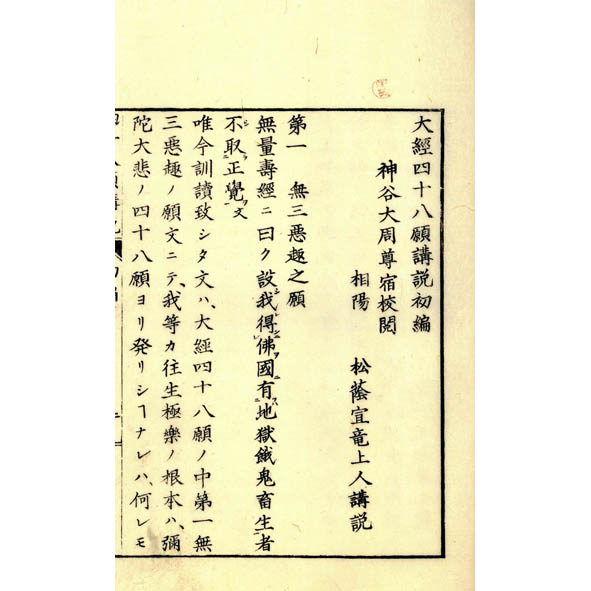 大經四十八願講説初編
神谷大周尊宿校閲
相陽　松蔭宜竜上人講説
第一　無三惡趣之願
無量壽經ニ曰ク設我得佛國有地獄餓鬼畜生者
不取正覺文
唯今訓讀致シタ文ハ、大經四十八願ノ中第一無
三惡趣ノ願文ニテ、我等カ往生極樂ノ根本ハ、彌
陀大悲ノ四十八願ヨリ発リシヿナレハ、何レモ